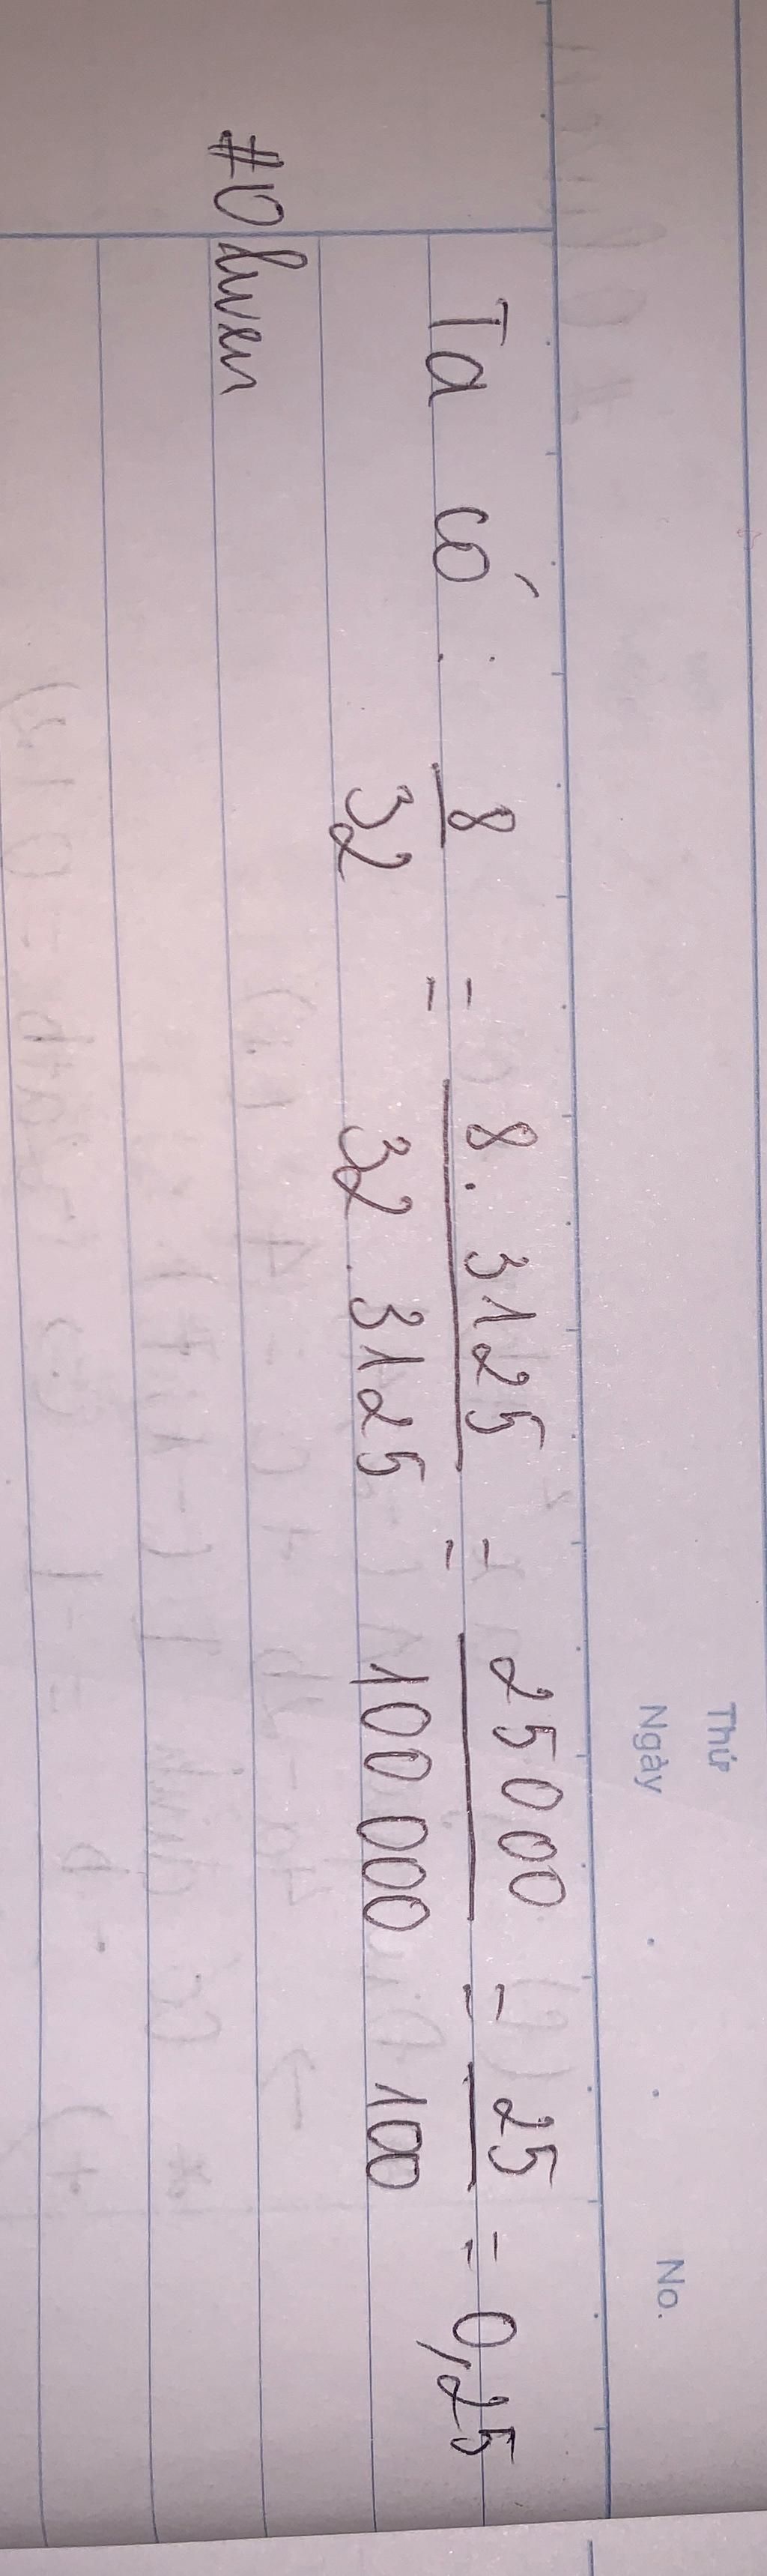 Thứ
Ngày . . No.
Ta có : 8/32 = 8 . 3125/32 . 3125 = 25000/100 000 = 25/100 = 0,25
#Olwen